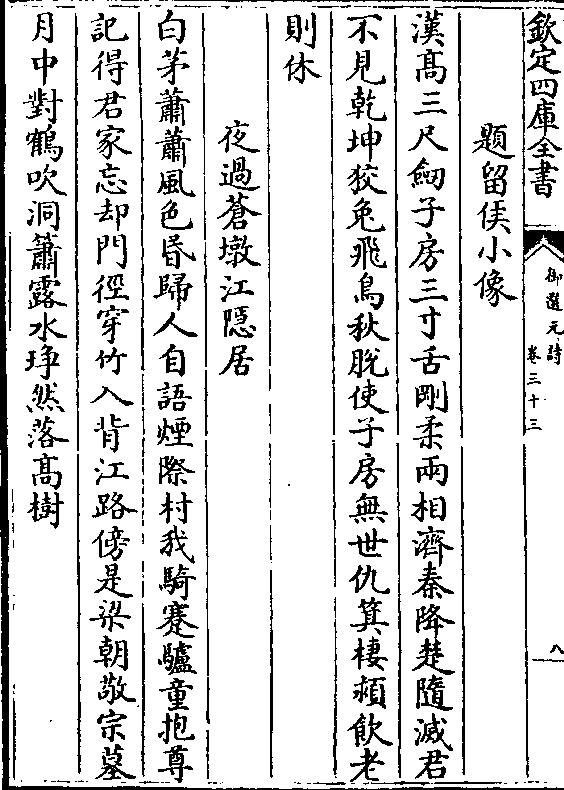 欽定四庫全書
御選元詩
卷三十三
八
題留侯小像
漢髙三尺劒子房三寸舌剛柔兩相濟秦降楚隨滅君
不見乾坤狡兔飛鳥秋脱使子房無世仇箕棲潁飲老
則休
夜過蒼墩江隠居
白茅蕭蕭風色昏歸人自語煙際村我騎蹇驢童抱尊
記得君家忘却門徑穿竹入背江路傍是梁朝敬宗墓
月中對鶴吹洞簫露水琤然落髙樹